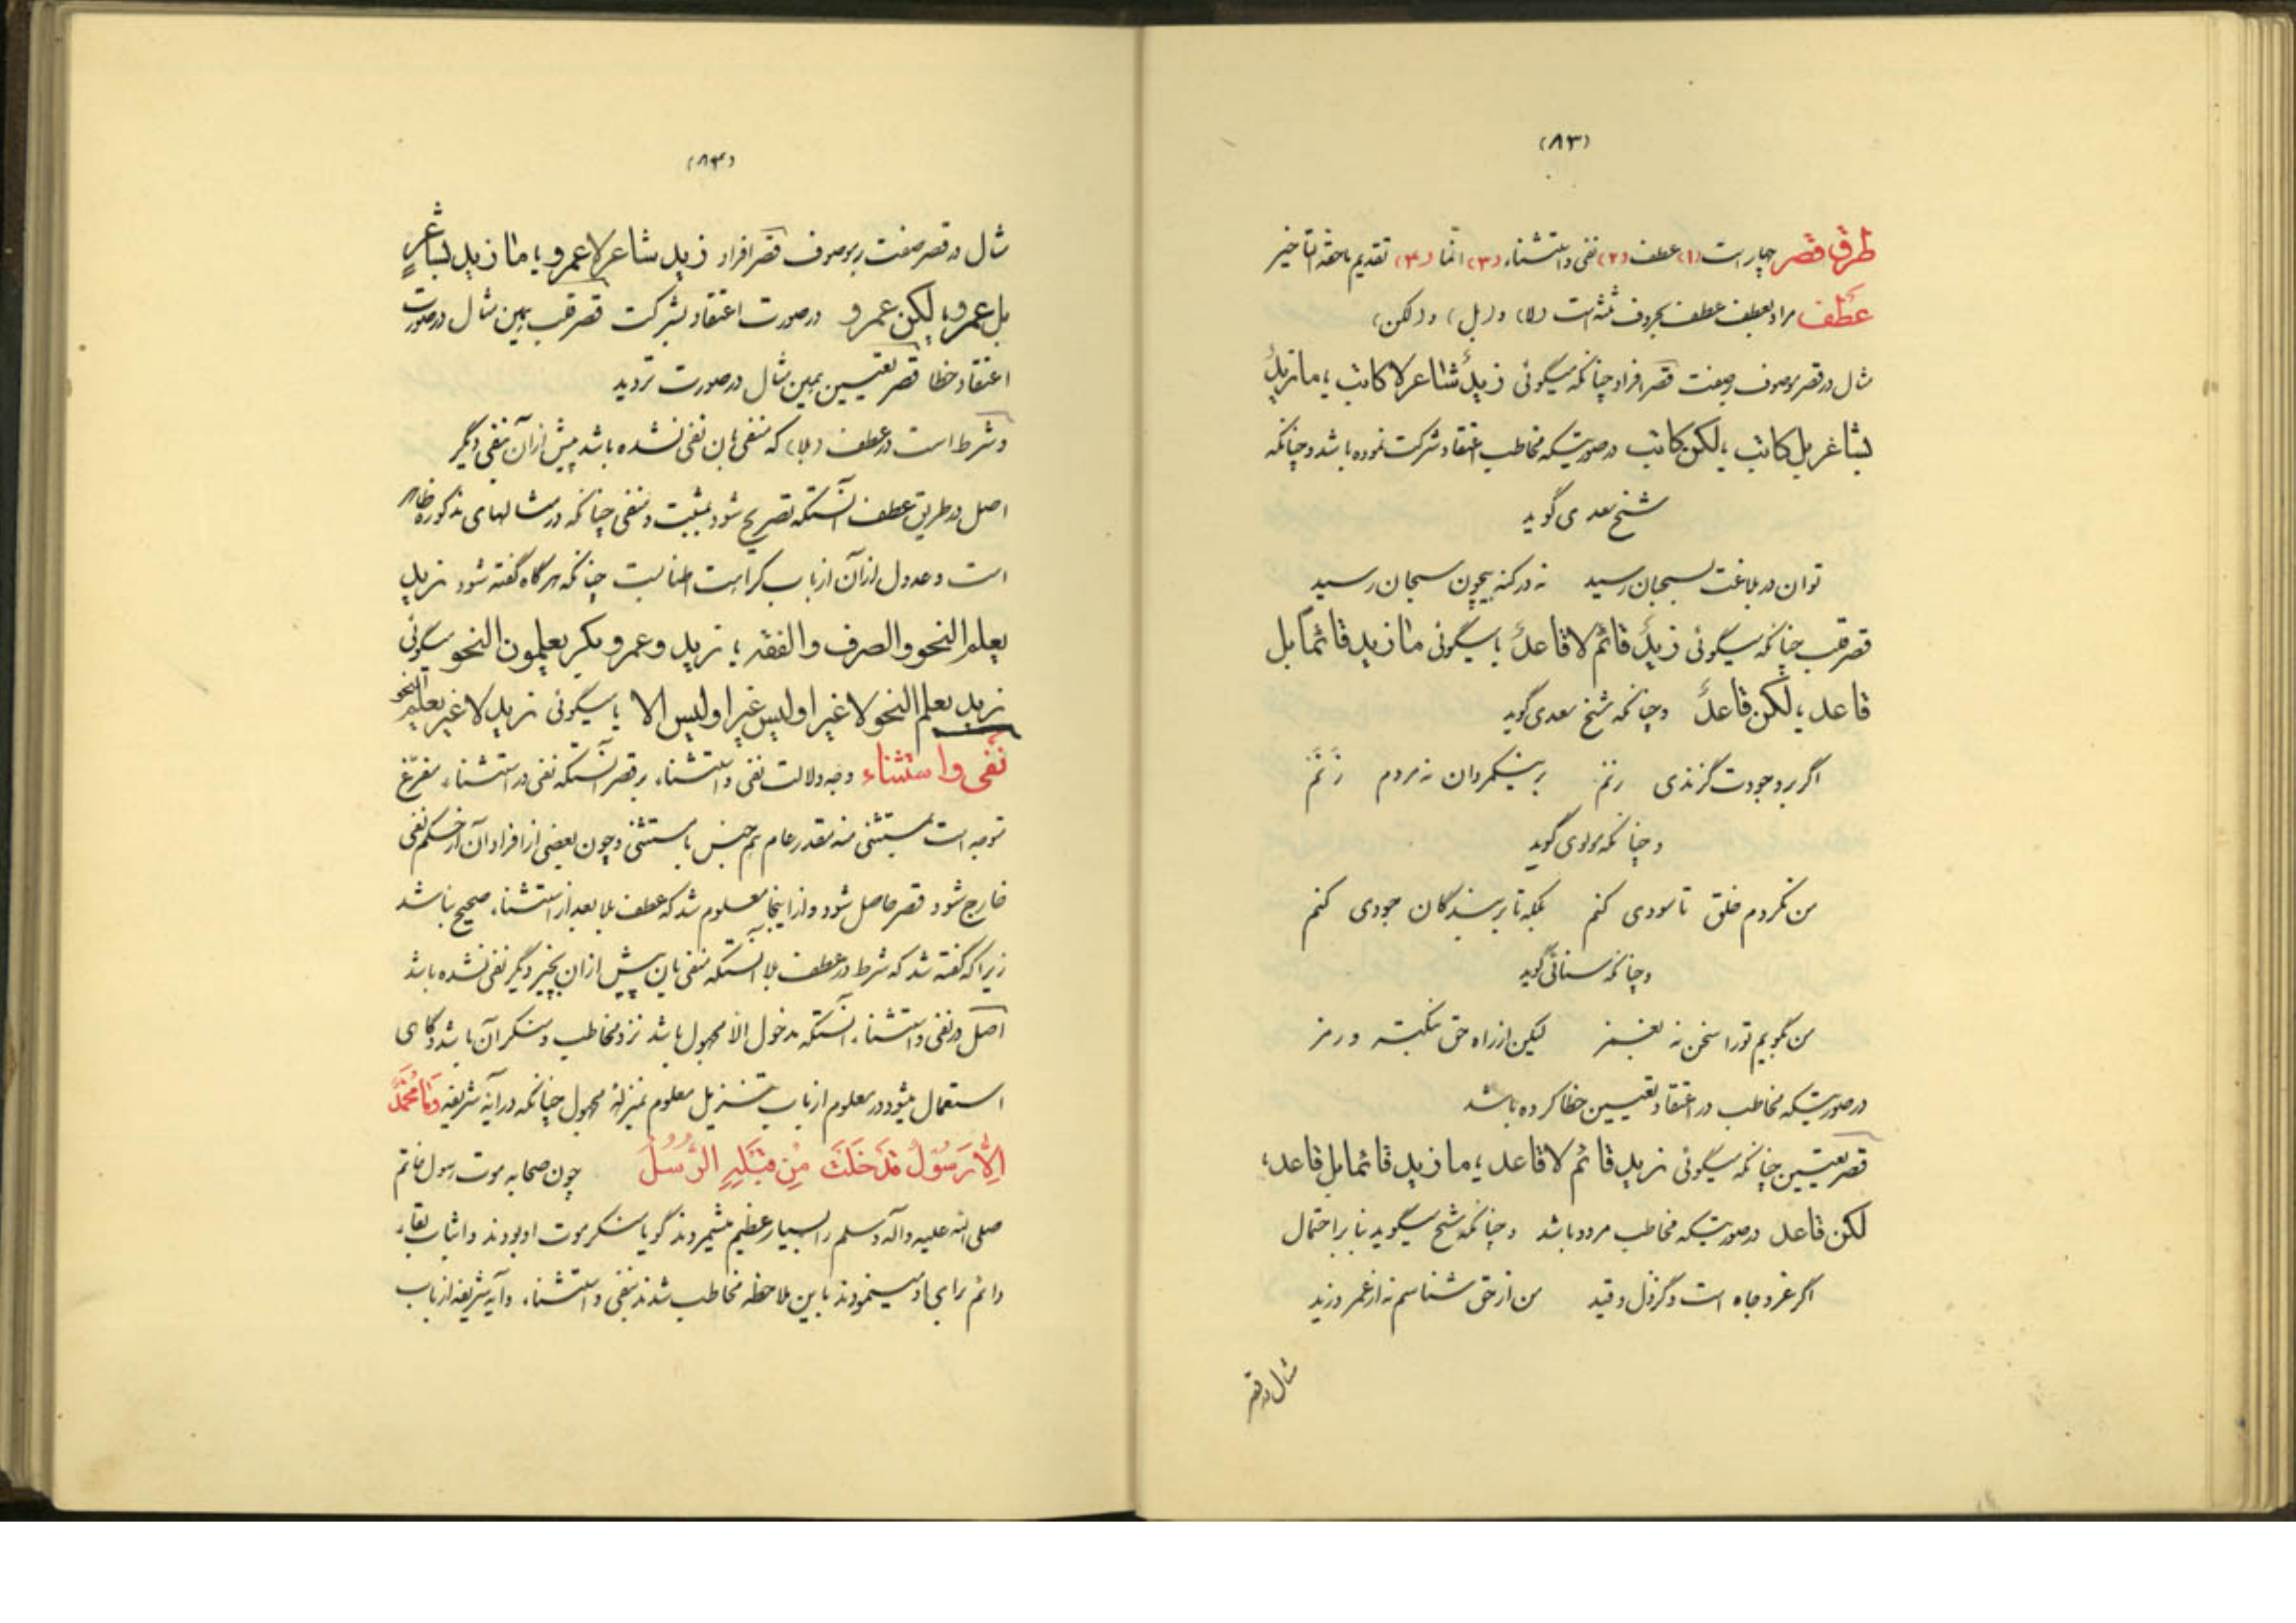 (۸۳)
طرق قصر چهار است (۱) عطف (۲) نفی و استثناء (۳) انّما (۴) تقدیم ماحقه التاخیر
عطف مراد بعطف عطف بحروف ثلثه است (لا) و (بل) و (لکن)
مثال در قصر موصوف بصفت قصر افراد چنانکه میگوئی زیدٌ شاعر لا کاتب یا ما زیدٌ
بشاغر بل کاتب یا لکن کاتب در صورتیکه مخاطب اعتقاد شرکت نموده باشد و چنانکه
شیخ سعدی گوید
توان در بلاغت بسحبان رسید نه در کنه بیچون سبحان رسید
قصر قلب چنانکه میگوئی زیدٌ قائم لا قاعدٌ یا میگوئی ما زید قائما بل
قاعد یا لکن قاعدٌ و چنانکه شیخ سعدی گوید
اگر بر وجودت گزندی زنم بر نیشکمردان نه مردم زَنَم
و چنانکه مولوی گوید
من نکردم خلق تا سودی کنم بلکه تا بر بندگان جودی کنم
و چنانکه سنائی گوید
من نگویم تو را سخن نه بغمز لیکن از راه حق بنکته و رمز
در صورتیکه مخاطب در اعتقاد تعیین خطا کرده باشد
قصر تعیین چنانکه میگوئی زید قائم لا قاعد یا ما زید قائما بل قاعد یا
لکن قاعد در صورتیکه مخاطب مردد باشد و چنانکه شیخ میگوید بنا بر احتمال
اگر عز و جاه است و گر ذل و قید من از حق شناسم نه از عمرو زید
مثال در قصر
(۸۴)
مثال در قصر صفت بر موصوف قصر افراد زید شاعر لا عمرو یا ما زید بشاعرٍ
بل عمرو یا لکن عمرو در صورت اعتقاد بشرکت قصر قلب بهمین مثال در صورت
اعتقاد خطا قصر تعیین بهمین مثال در صورت تردید
و شرط است در عطف (بلا) که منفی بان نفی نشده باشد پیش از آن بنفی دیگر
اصل در طریق عطف آنستکه تصریح شود بمثبت و منفی چنانکه در مثالهای مذکوره ظاهر
است و عدول از آن از باب کراهت اطناب است چنانکه هرگاه گفته شود زید
یعلم النحو والصرف والفقه یا زید وعمرو بکر یعلمون النحو میگوئی
زید یعلم النحو لا غیر او لیس غیر او لیس الا یا میگوئی زید لا غیر یعلم النحو
نفی و استثناء وجه دلالت نفی و استثناء بر قصر آنستکه نفی در استثناء مفرّغ
متوجه است بمستثنی منه مقدر عام هم جنس با مستثنی و چون بعضی از افراد آن از حکم نفی
خارج شود قصر حاصل شود و از اینجا معلوم شد که عطف بلا بعد از استثناء صحیح نباشد
زیرا که گفته شد که شرط در عطف بلا آنستکه منفی بان پیش از ان بچیز دیگر نفی نشده باشد
اصل در نفی و استثناء آنستکه مدخول الا مجهول باشد نزد مخاطب و منکر آن باشد و گاهی
استعمال میشود در معلوم از باب تنزیل معلوم بمنزلهٔ مجهول چنانکه در آیه شریفه وَمَا مُحَمَّدٌ
اِلَّا رَسُوْلٌ قَدْ خَلَتْ مِنْ قَبْلِهِ الرُّسُلُ چون صحابه موت رسول خاتم
صلی الله علیه و آله و سلم را بسیار عظیم میشمردند گویا منکر موت او بودند و اثبات بقاء
دائم برای او مینمودند باین ملاحظه مخاطب شدند بنفی و استثناء و آیه شریفه از باب